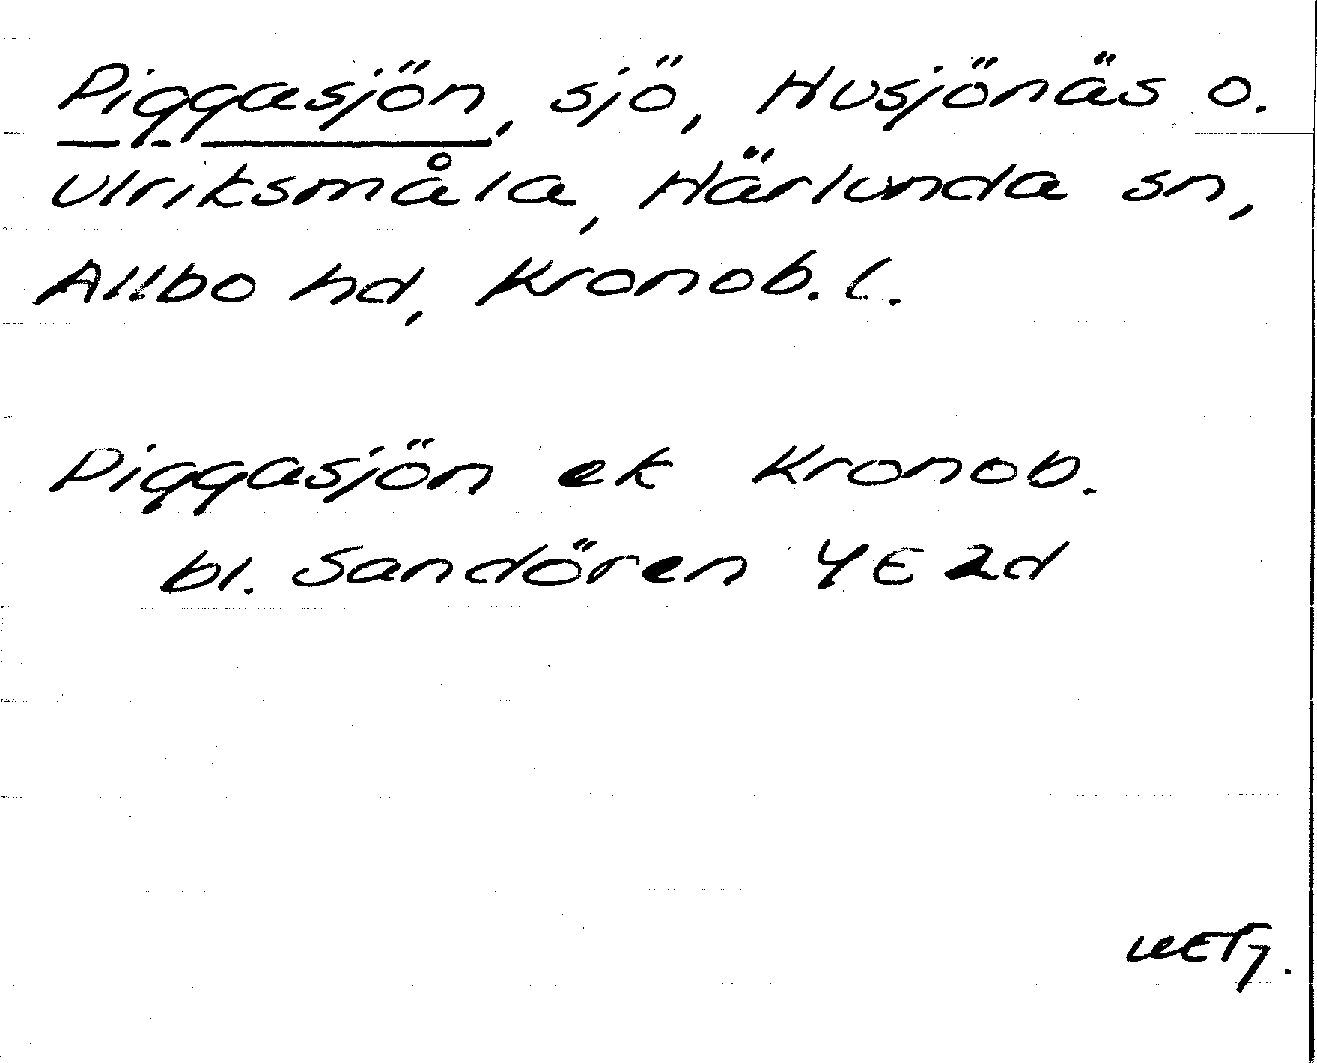 Piggasjön, sjö, Husjönäs o.
Ulriksmåla, Härlunda sn,
Allbo hd, Kronob. l.
Piggasjön ek Kronob.
bl. Sandören 4E2d